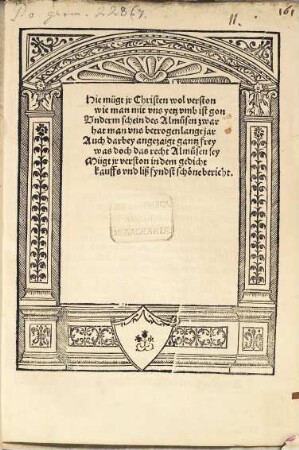 Po. germ. 228 67.
II.
161
Hie mügt jr Christen wol verston
wie man mit vns yetz vmb ist gon
Vnderm schein des Almůsen zwar
hat man vns betrogen lange jar
Auch darbey angezaigt gantz frey
was doch das recht Almůsen sey
Mügt jr verston in dem gedicht
kauffs vnd liß fyndst schöne bericht.
MONACENSIS